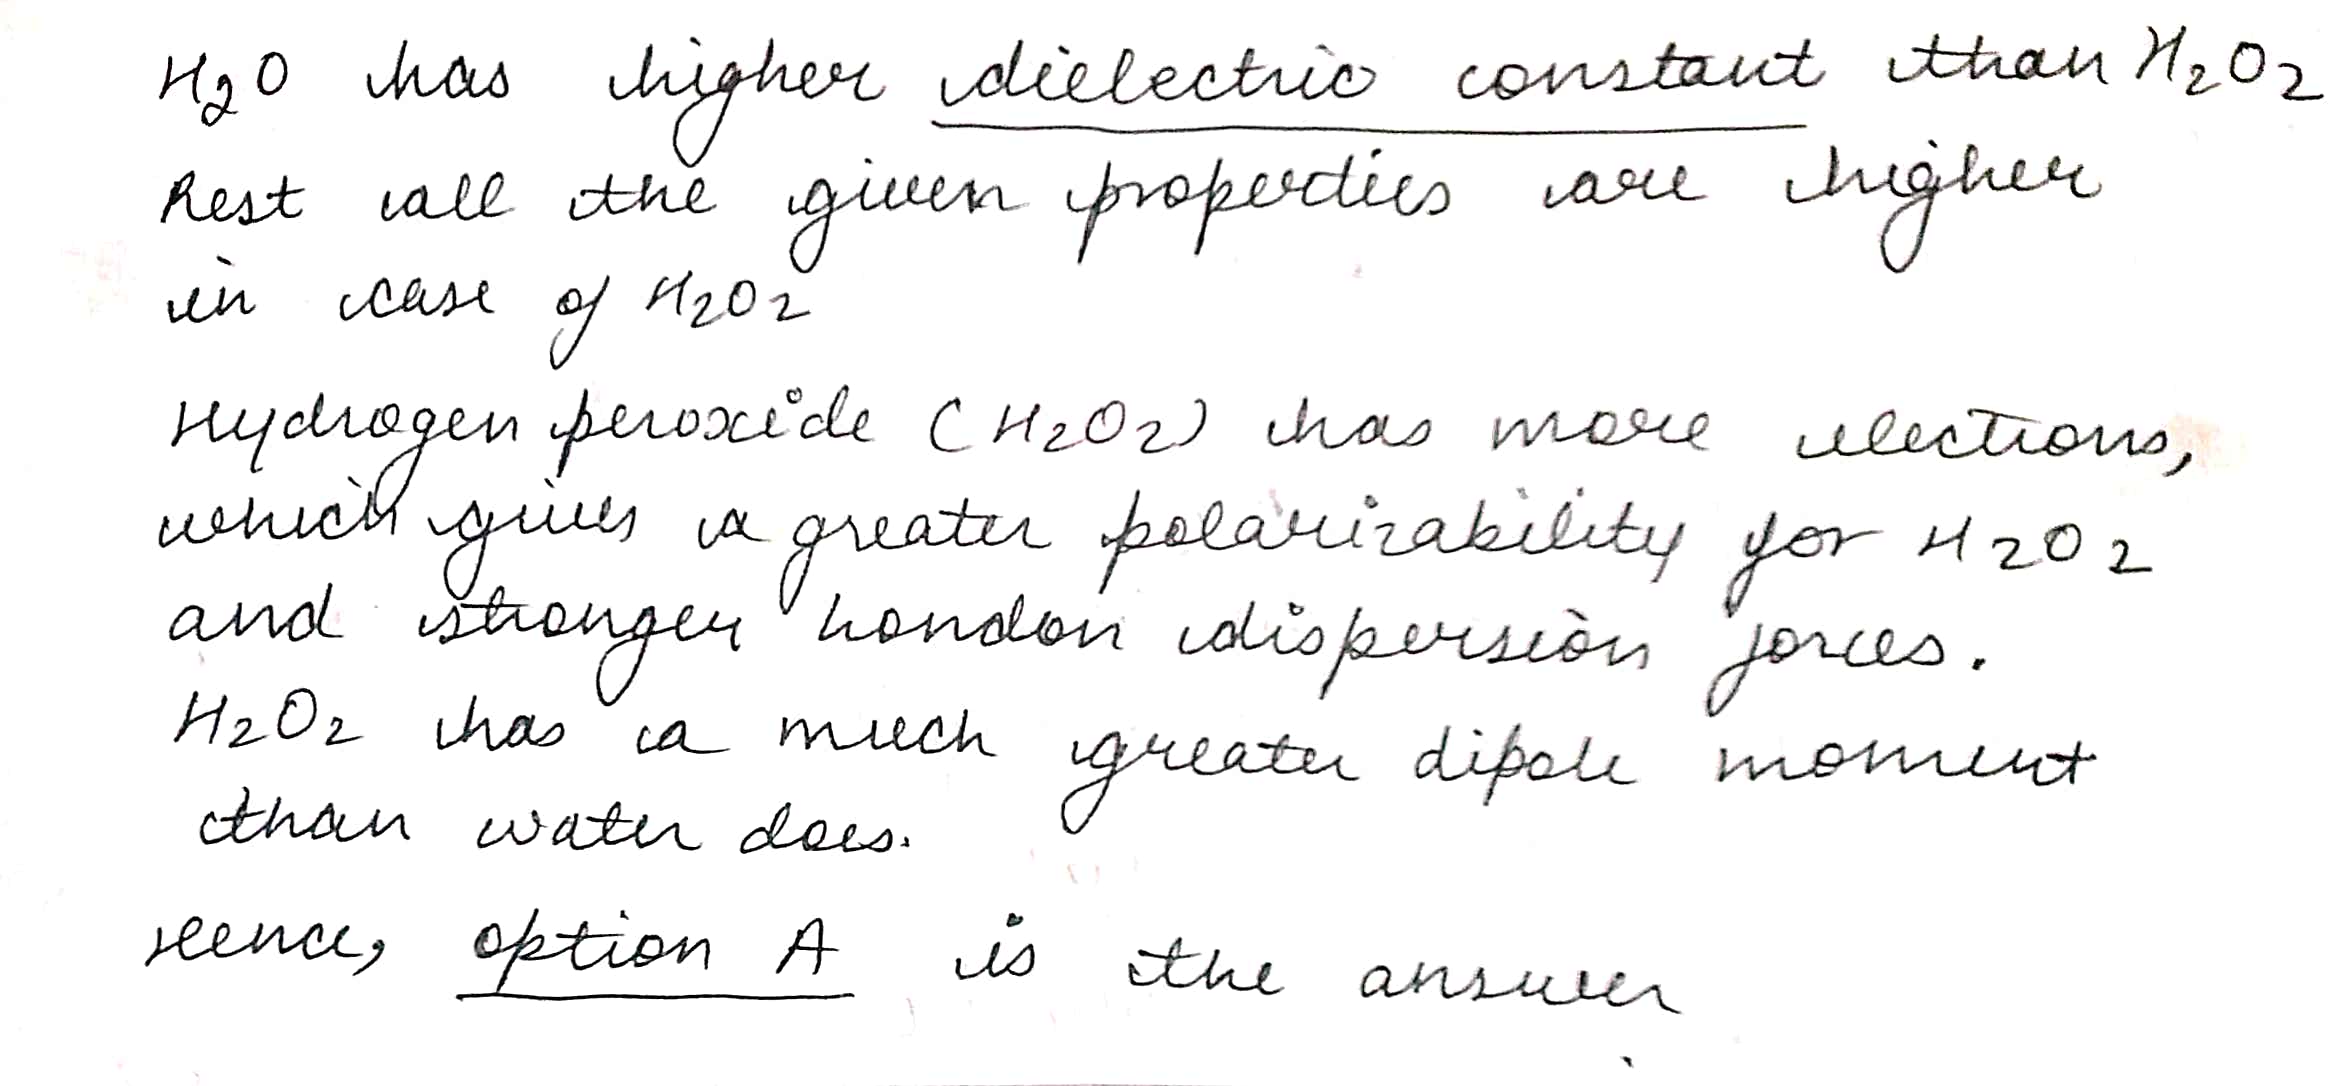 H2O has higher dielectric constant than H2O2
Rest all the given properties are higher
in case of H2O2
Hydrogen peroxide (H2O2) has more electrons,
which gives a greater polarizability for H2O2
and stronger London dispersion forces.
H2O2 has a much greater dipole moment
than water does.
Hence, option A is the answer